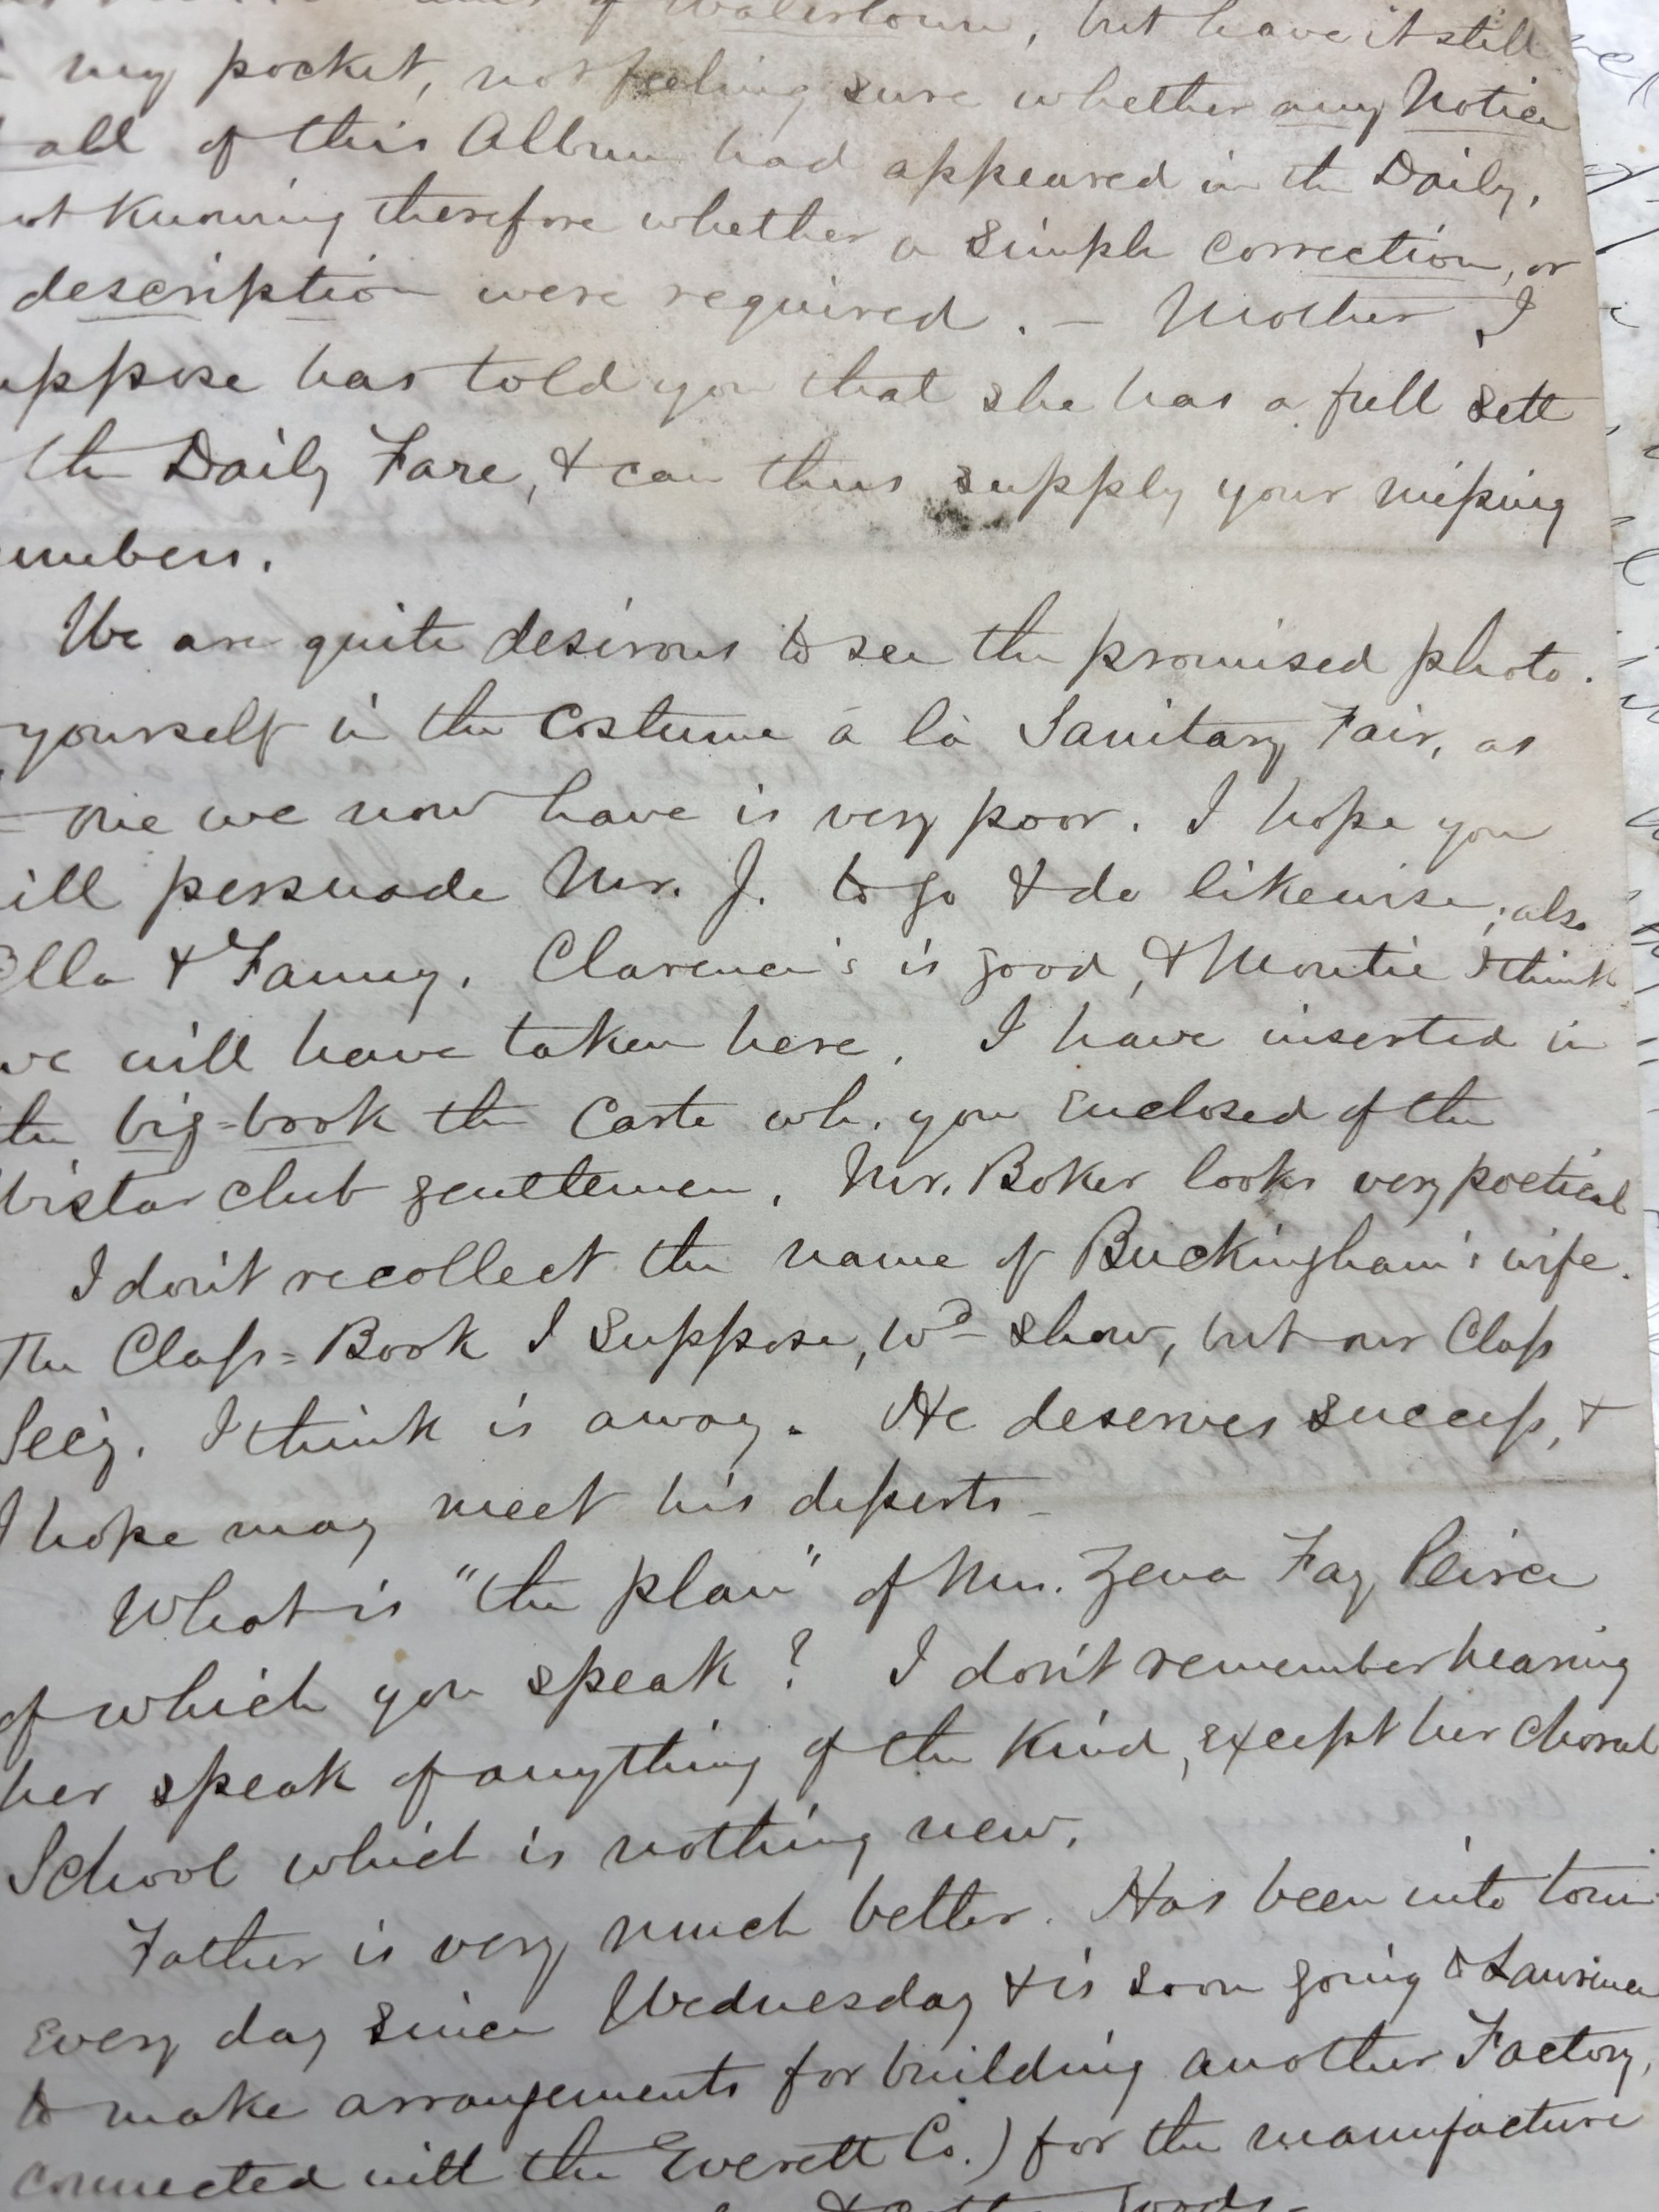 of Watertown, but have it still
my pocket, not feeling sure whether any Notice
all of this Album had appeared in the Daily,
not knowing therefore whether a simple correction, or
description were required. — Mother I
uppose has told you that she has a full sett
the Daily Fare, & can thus supply your missing
umbers.
We are quite desirous to see the promised photo.
yourself in the costume à la Sanitary Fair, as
one we now have is very poor. I hope you
ill persuade Mr. J. to go & do likewise; also
Ella & Fanny. Clarence's is good, & Montie I think
we will have taken here. I have inserted in
the big-book the Carte wh. you enclosed of the
Wistar club gentlemen. Mr. Boker looks very poetical
I don't recollect the name of Buckingham's wife.
The Class-Book I suppose, wd show, but our Class
Sec'y. I think is away. He deserves success, &
I hope may meet his desserts –
What is "the plan" of Mrs. Zena Fay Peirce
of which you speak? I don't remember hearing
her speak of anything of the kind, except her choral
School which is nothing new.
Father is very much better. Has been into town
Every day since Wednesday & is soon going to Lawrence
to make arrangements for building another Factory,
connected with the Everett Co.) for the manufacture
goods –